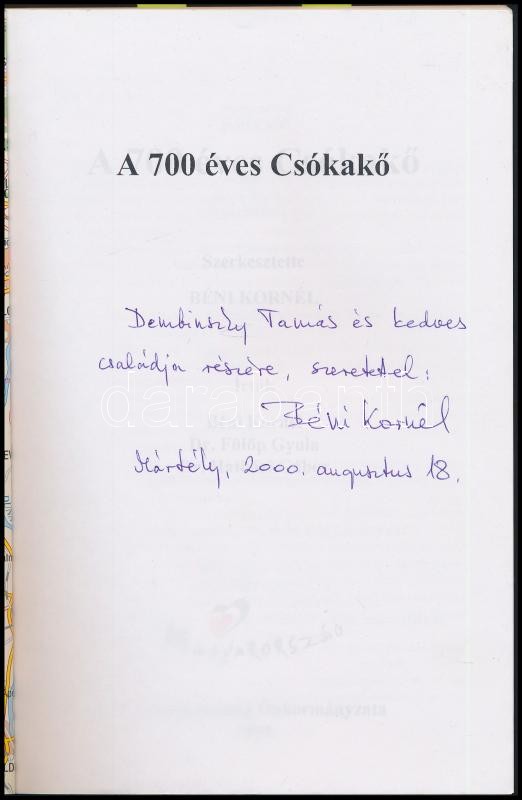 A 700 éves Csókakő
Szerkesztette
BÉNI KORNÉL
Dembinszky Tamás és kedves
családja részére, szeretettel:
Béni Kornél
Dr. Fülöp Gyula
Mártély, 2000. augusztus 18.
Magyarország
Önkormányzata